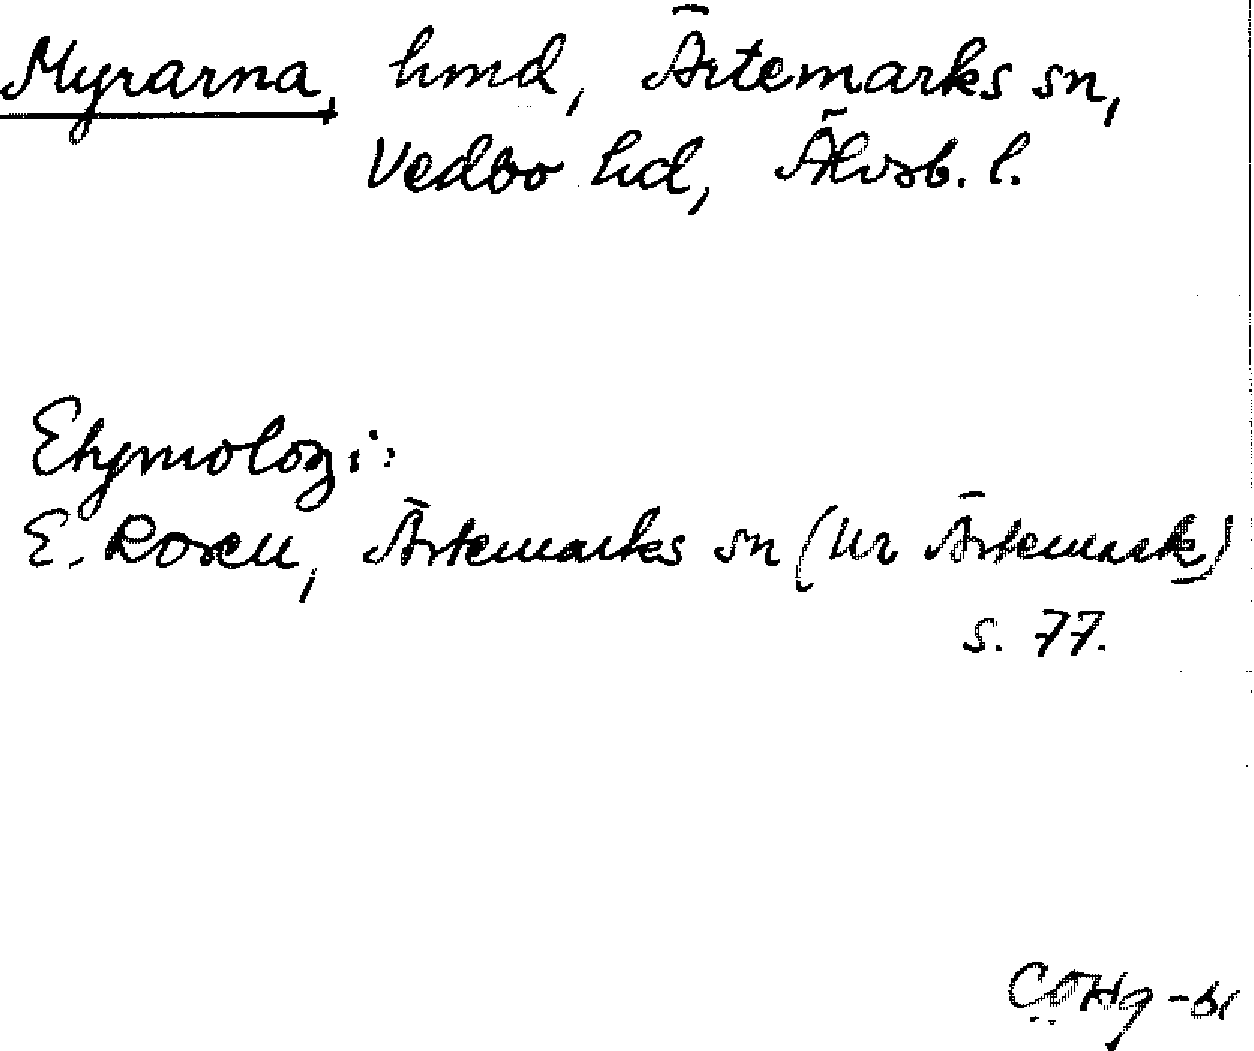 Myrarna, hmd, Ärtemarks sn,
Vedbo hd, Älvsb. l.
Etymologi:
E. Rosell, Ärtemarks sn (ur Ärtemark)
s. 77.